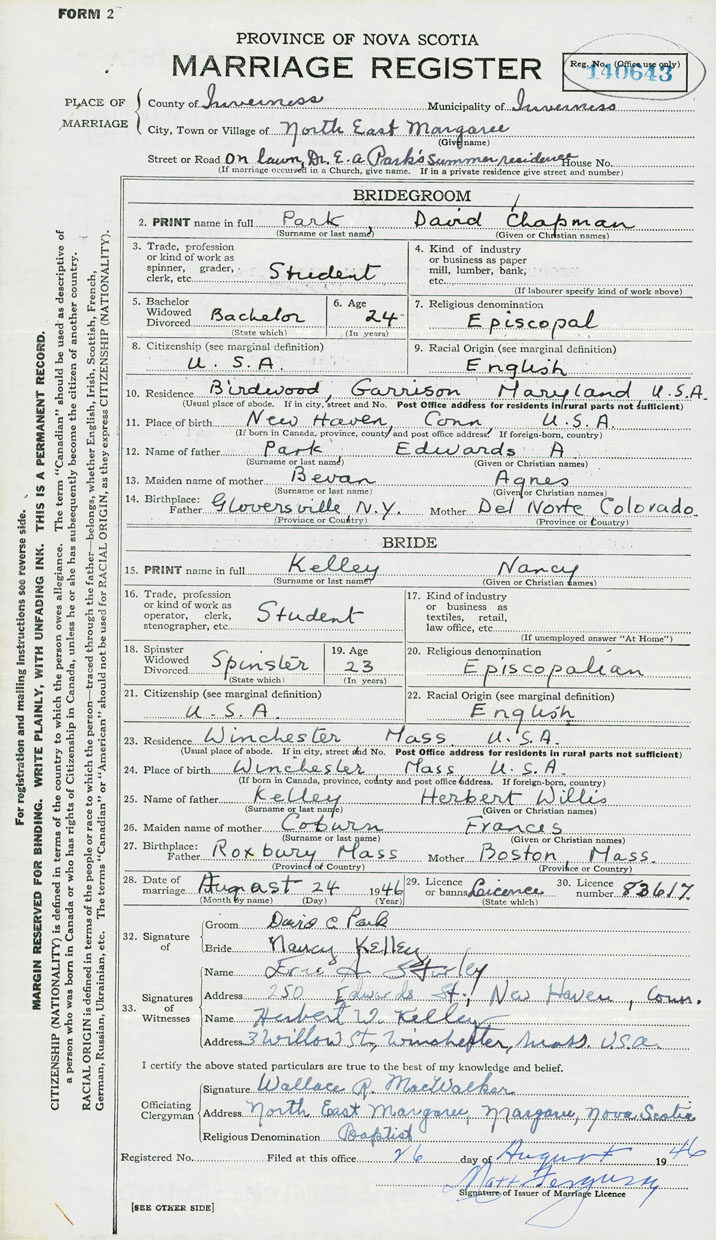 FORM 2
PROVINCE OF NOVA SCOTIA
MARRIAGE REGISTER
Reg. No. (Office use only)
140643
PLACE OF MARRIAGE
County of Inverness Municipality of Inverness
City, Town or Village of North East Margaree
(Give name)
Street or Road On lawn, Dr. E. A. Park's summer residence House No.
(If marriage occurred in a Church, give name. If in a private residence give street and number)
BRIDEGROOM
2. PRINT name in full Park, David Chapman
(Surname or last name) (Given or Christian names)
3. Trade, profession or kind of work as spinner, grader, clerk, etc. Student
4. Kind of industry or business as paper mill, lumber, bank, etc.
(If labourer specify kind of work above)
5. Bachelor Widowed Divorced Bachelor
(State which)
6. Age 24
(In years)
7. Religious denomination
Episcopal
8. Citizenship (see marginal definition)
U. S. A.
9. Racial Origin (see marginal definition)
English
10. Residence Birdwood, Garrison Maryland U.S.A.
(Usual place of abode. If in city, street and No. Post Office address for residents in rural parts not sufficient)
11. Place of birth New Haven, Conn U.S.A.
(If born in Canada, province, county and post office address. If foreign-born, country)
12. Name of father Park Edwards A
(Surname or last name) (Given or Christian names)
13. Maiden name of mother Bevan Agnes
(Surname or last name) (Given or Christian names)
14. Birthplace: Father Gloversville N.Y. Mother Del Norte Colorado.
(Province or Country) (Province or Country)
BRIDE
15. PRINT name in full Kelley Nancy
(Surname or last name) (Given or Christian names)
16. Trade, profession or kind of work as operator, clerk, stenographer, etc. Student
17. Kind of industry or business as textiles, retail, law office, etc.
(If unemployed answer "At Home")
18. Spinster Widowed Divorced Spinster
(State which)
19. Age
23
(In years)
20. Religious denomination
Episcopalian
21. Citizenship (see marginal definition)
U.S.A.
22. Racial Origin (see marginal definition)
English
23. Residence Winchester Mass. U.S.A.
(Usual place of abode. If in city, street and No. Post Office address for residents in rural parts not sufficient)
24. Place of birth Winchester Mass, U.S.A.
(If born in Canada, province, county and post office address. If foreign-born, country)
25. Name of father Kelley Herbert Willis
(Surname or last name) (Given or Christian names)
26. Maiden name of mother Coburn Frances
(Surname or last name) (Given or Christian names)
27. Birthplace: Father Roxbury Mass Mother Boston, Mass.
(Province or Country) (Province or Country)
28. Date of marriage August 24 1946
(Month by name) (Day) (Year)
29. Licence or banns Licence
(State which)
30. Licence number 83617
32. Signature of
Groom David C Park
Bride Nancy Kelley
33. Signatures of Witnesses
Name Eric
Address 250 Edwards St., New Haven, Conn.
Name Herbert W. Kelley
Address 3 Willow St, Winchester, Mass. U.S.A.
I certify the above stated particulars are true to the best of my knowledge and belief.
Officiating Clergyman
Signature Wallace R. MacWalker
Address North East Margaree, Margaree, Nova Scotia
Religious Denomination Baptist
Registered No. Filed at this office 26 day of August 1946
Matt Ferguson
Signature of Issuer of Marriage Licence
[SEE OTHER SIDE]
For registration and mailing instructions see reverse side.
MARGIN RESERVED FOR BINDING. WRITE PLAINLY, WITH UNFADING INK. THIS IS A PERMANENT RECORD.
CITIZENSHIP (NATIONALITY) is defined in terms of the country to which the person owes allegiance. The term "Canadian" should be used as descriptive of
a person who was born in Canada or who has rights of Citizenship in Canada, unless he or she has subsequently become the citizen of another country.
RACIAL ORIGIN is defined in terms of the people or race to which the person—traced through the father—belongs, whether English, Irish, Scottish, French,
German, Russian, Ukrainian, etc. The terms "Canadian" or "American" should not be used for RACIAL ORIGIN, as they express CITIZENSHIP (NATIONALITY).